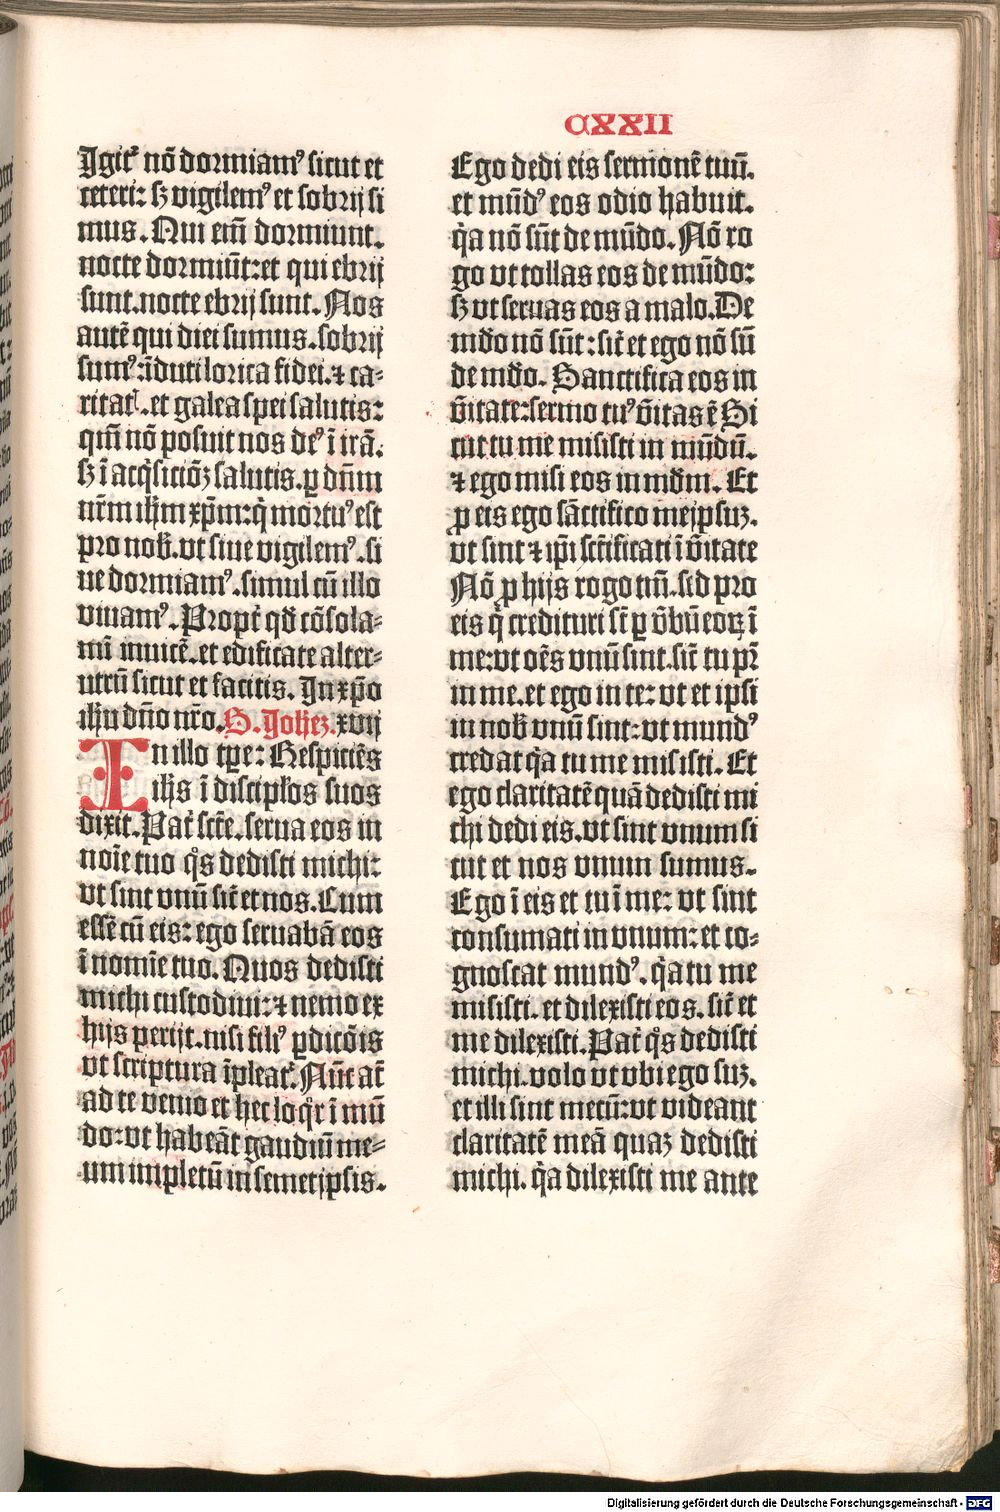 CXXII
Igit᷑ nō dormiamꝰ sicut et
ceteri: sꝫ vigilemꝰ et sobrij si
mus. Qui em̄ dormiunt.
nocte dormiūt: et qui ebrij
sunt. nocte ebrij sunt. Nos
autē qui diei sumus. sobrij
sumꝰ: īduti lorica fidei. ⁊ ca⸗
ritatꝭ. et galea spei salutis:
qm̄ nō posuit nos deꝰ ī irā.
sꝫ ī acq̇sicōꝫ salutis. ꝑ dn̄m
nr̄m ih̄m xp̄m: q̇ mortuꝰ est
pro nob̄. vt siue vigilemꝰ. si
ue dormiamꝰ. simul cū illo
viuamꝰ. Propt᷑ qd̄ cōsola⸗
mī inuicē. et edificate alter⸗
utrū sicut et facitis. In xp̄o
ih̄u dn̄o nr̄o. S. Joh̄eꝫ. xvij
In illo tꝑe: Respiciēs
ih̄s ī discip̄los suos
dixit. Pat᷑ sc̄te. serua eos in
noīe tuo q̊s dedisti michi:
vt sint vnū sic̄ et nos. Cum
essē cū eis: ego seruabā eos
ī nomīe tuo. Quos dedisti
michi custodiui: ⁊ nēmo ex
hijs perijt. nisi filiꝰ ꝑdicōis
vt scriptura īpleat᷑. Nūc at̄
ad te venio et hec loq̊r ī mū
do: vt habeāt gaudiū me⸗
um impletū in semetipsis.
Ego dedi eis sermonē tuū.
et mūdꝰ eos odio habuit.
q̇a nō sūt de mūdo. Nō ro
go vt tollas eos de mūdo:
sꝫ vt seruas eos a malo. De
mdo nō sūt: sic̄ et ego nō sū
de mdo. Sanctifica eos in
v̄itate: sermo tuꝰ v̄itas ē Si
cut tu me misisti in mūdū.
⁊ ego misi eos in mdm. Et
ꝓ eis ego sāctifico meip̄suꝫ.
vt sint ⁊ ip̄i sc̄tificati ī v̄itate
Nō ꝓ hijs rogo tm̄. sed pro
eis q̇ credituri st̄ ꝑ v̄bū eoꝝ ī
me: vt oēs vnū sint. sic̄ tu pr̄
in me. et ego in te: vt et ipsi
in nob̄ vnū sint: vt mundꝰ
credat q̇a tu me misisti. Et
ego claritatē quā dedisti mi
chi dedi eis. vt sint vnum si
cut et nos vnum sumus.
Ego ī eis et tu ī me: vt sint
consumati in vnum: et co⸗
gnoscat mundꝰ. q̇a tu me
misisti. et dilexisti eos. sic̄ et
me dilexisti. Pat᷑ q̊s dedisti
michi. volo vt vbi ego suꝫ.
et illi sint mecū: vt videant
claritatē meā quaꝫ dedisti
michi. q̇a dilexisti me ante
Digitalisierung gefördert durch die Deutsche Forschungsgemeinschaft - DFG